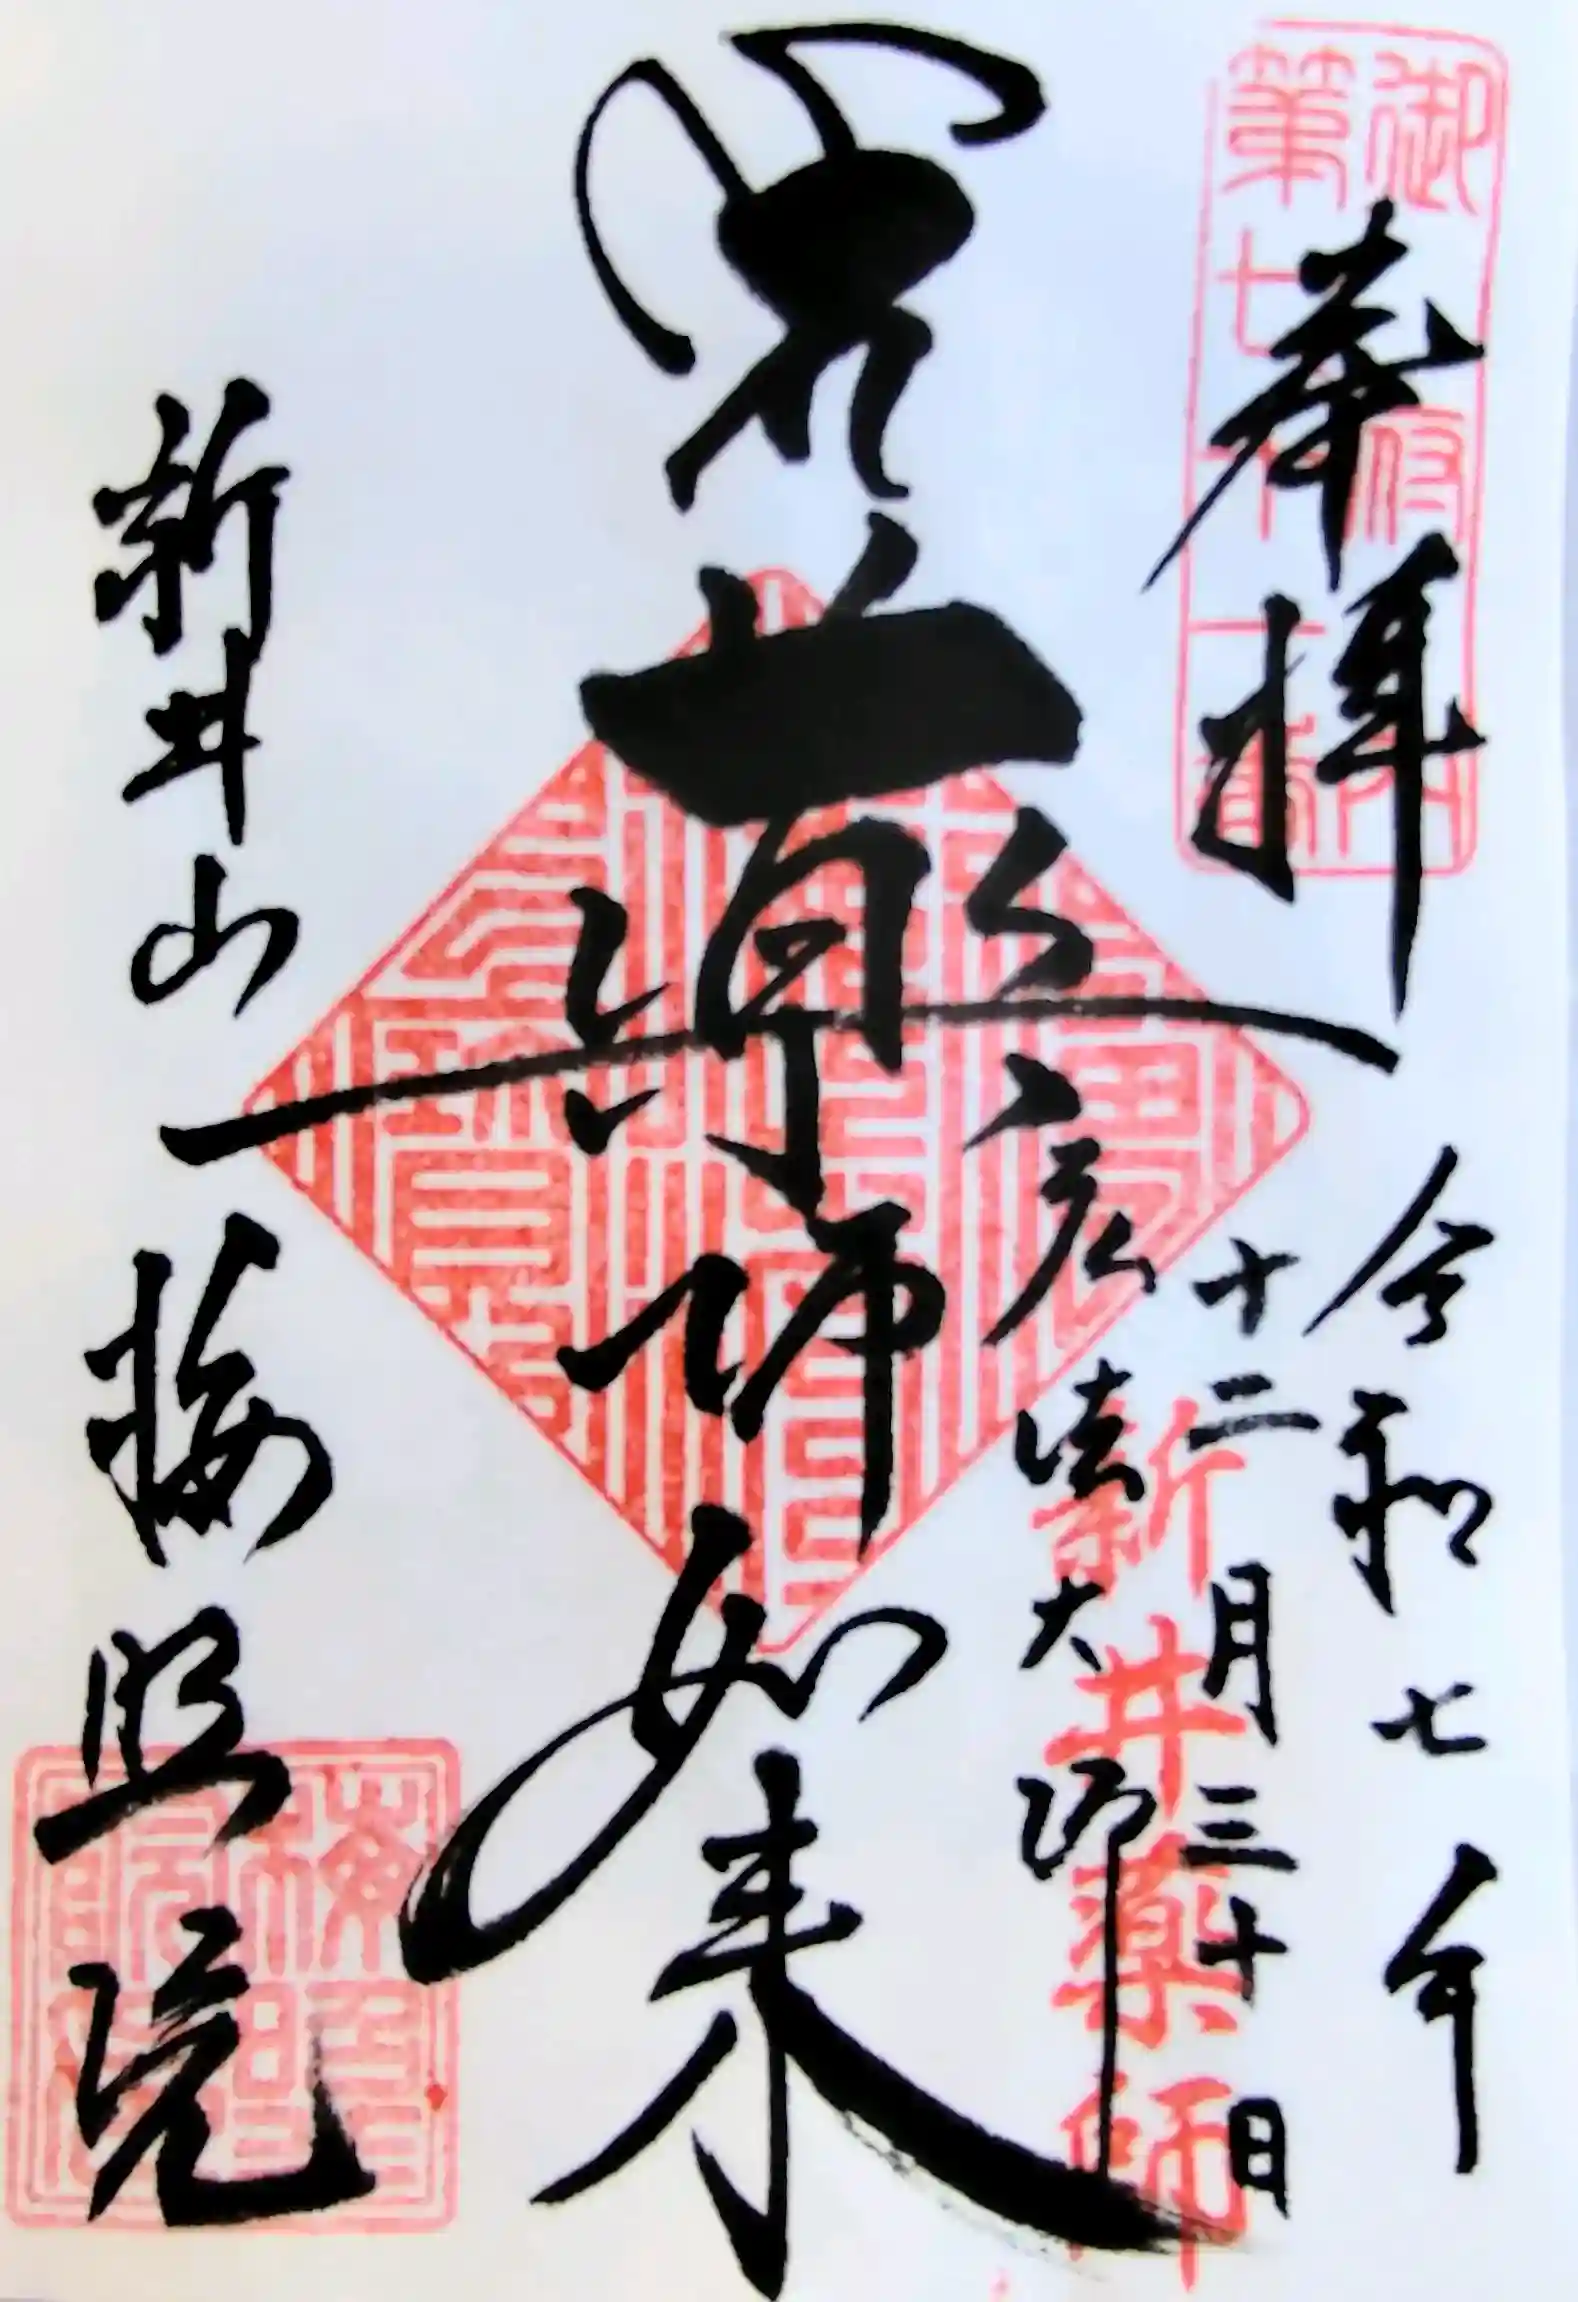 御府内
第七十一番
奉拝
令和七年
十二月三十日
新井薬師
弘法大師
薬師如来
新井山
梅照院